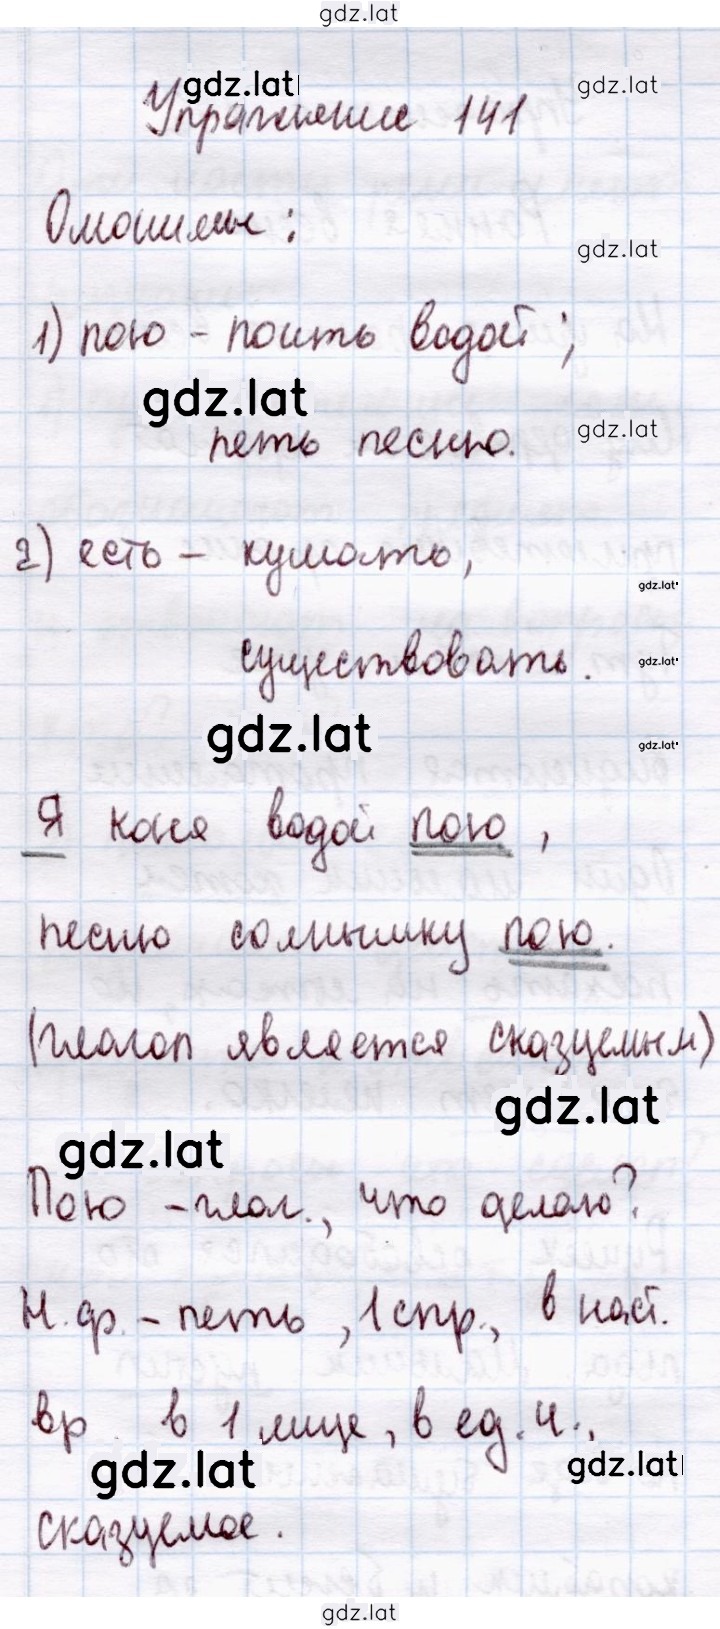 gdz.lat
Упражнение 141
gdz.lat gdz.lat
Омонимы:
gdz.lat
1) пою - поить водой;
gdz.lat
петь песню.
gdz.lat
2) есть - кушать,
gdz.lat
существовать.
gdz.lat
gdz.lat
gdz.lat
Я коня водой пою,
песню солнышку пою.
(глагол является сказуемым)
gdz.lat
gdz.lat
Пою - глаг., что делаю?
Н.ф. - петь, 1 спр., в наст.
вр в 1 лице, в ед.ч.,
gdz.lat
gdz.lat
сказуемое.
gdz.lat